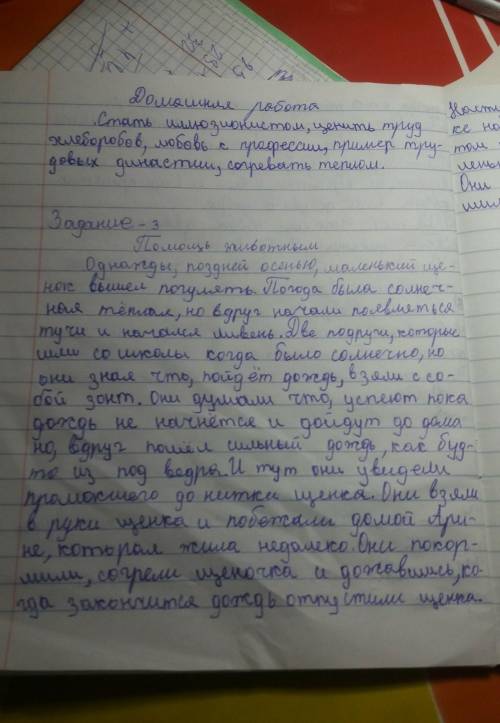 Домашняя работа
Стать иллюзионистом, ценить труд
хлеборобов, любовь к профессии, пример тру-
довых династии, согревать теплом.
Задание - 3
Помощь животным
Однажды, поздней осенью, маленький ще-
нок вышел погулять. Погода была солнеч-
ная тёплая, но вдруг начали появляться
тучи и начался ливень. Две подруги, которые
шли со школы когда было солнечно, но
они зная что, пойдёт дождь, взяли с со-
бой зонт. Они думали что, успеют пока
дождь не начнётся и дойдут до дома
но, вдруг пошёл сильный дождь, как буд-
то из под ведра. И тут они увидели
промокшего до нитки щенка. Они взяли
в руки щенка и побежали домой Ари-
не, которая жила недалеко. Они покор-
мили, согрели щеночка и дожавшись, ко-
гда закончится дождь отпустили щенка.
Наст
ке на
том
лень
Они